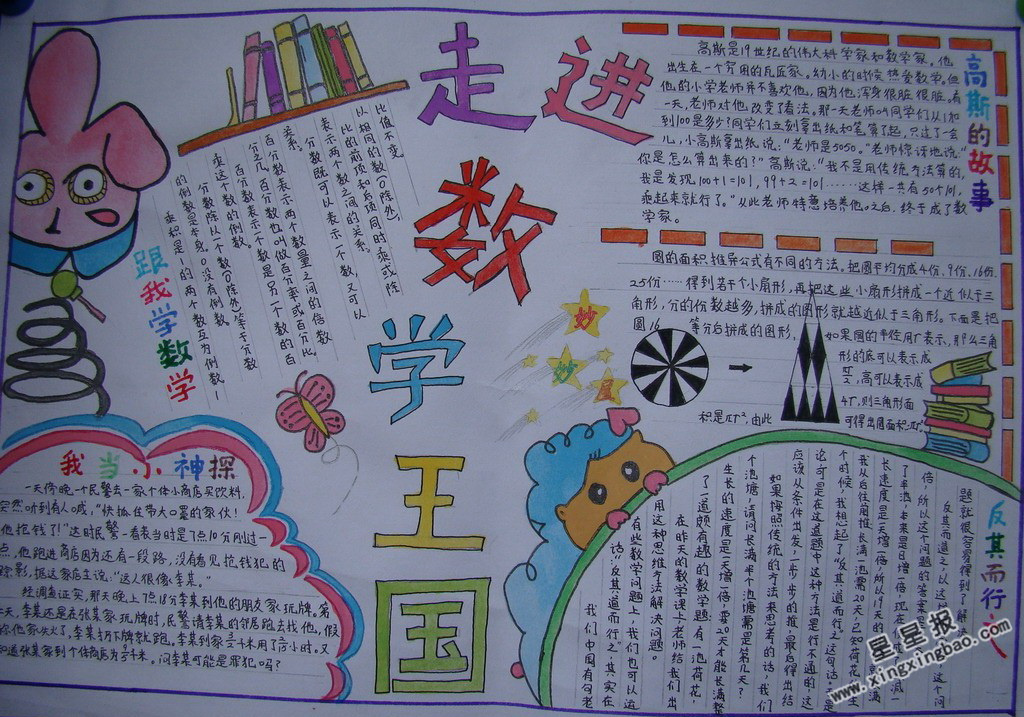 走进数学王国
高斯的故事
高斯是19世纪的伟大科学家和数学家。他
出生在一个穷困的瓦匠家。幼小的时候热爱数学。但
他的小学老师并不喜欢他,因为他浑身很脏很脏。有
一天,老师对他改变了看法。那一天老师叫同学们从1加
到100是多少?同学们立刻拿出纸和笔算了起,只过了一会
儿,小高斯拿出纸说:“老师是5050。”老师惊讶地说:“
你是怎么算出来的?”高斯说:“我不是用传统方法算的,
我是发现100+1=101,99+2=101……这样一共有50个101,
乘起来就行了。”从此老师特意培养他之后,终于成了数
学家。
圆的面积推导公式有不同的方法。把圆平均分成4份、9份、16份、
25份……得到若干个小扇形,再把这些小扇形拼成一个近似于三
角形,分的份数越多,拼成的图形就越近似于三角形。下面是把
圆16等分后拼成的图形,
如果圆的半径用r表示,那么三角
形的底可以表示成
,高可以表示成
4r,则三角形面
积是πr²,由此
可得出圆面积πr²
妙
妙
屋
跟我学数学
比值不变。
以相同的数(0除外),
比的前项和后项同时乘或除
表示两个数之间的关系。
分数既可以表示一个数,又可以
关系。
百分数表示两个数量之间的倍数
分之几,百分数也叫做百分率或百分比。
百分数表示一个数是另一个数的百
乘这个数的倒数。
分数除以一个数(0除外)等于分数
的倒数是本身。0没有倒数。
乘积是1的两个数互为倒数,1
我当小神探
一天傍晚一个民警去一家个体小商店买饮料,
突然听到有人喊,“快抓住带大口罩的家伙!
他抢钱了!”这时民警一看表当时是7点10分刚过一
点,他跑进商店因为还有一段路,没有看见抢钱犯的
踪影,据这家店主说:“这人很像李某。”
经调查证实,那天晚上7点18分李某到他的朋友家玩牌。第
天,李某还是在张某家玩牌时,民警请李某的邻居跑去找他,假
你他家失火了,李某扔下牌就跑。李某到家
知道张某家到个体商店为 千米。问李某可能是罪犯吗?
反其而行之
我们中国有句老
话“反其道而行之”其实在
有些数学问题上,我们也可以运
用这种思维方法解决问题。
在昨天的数学课上老师给我们出
了一道颇有趣的数学题:有一池荷花,
生长的速度是一天增一倍,要20天才能长满整
个池塘,请问长满半个池塘需是第几天?
如果按照传统的方法来思考的话,我们
应该从条件出发,一步一步的推,最后得出结
论,可是在这道题中这种方法是行不通的,这
个时候,我想起了“反其道而行之”这句话。
题就很容易得到了解决
www.xingxingbao.com
星星报